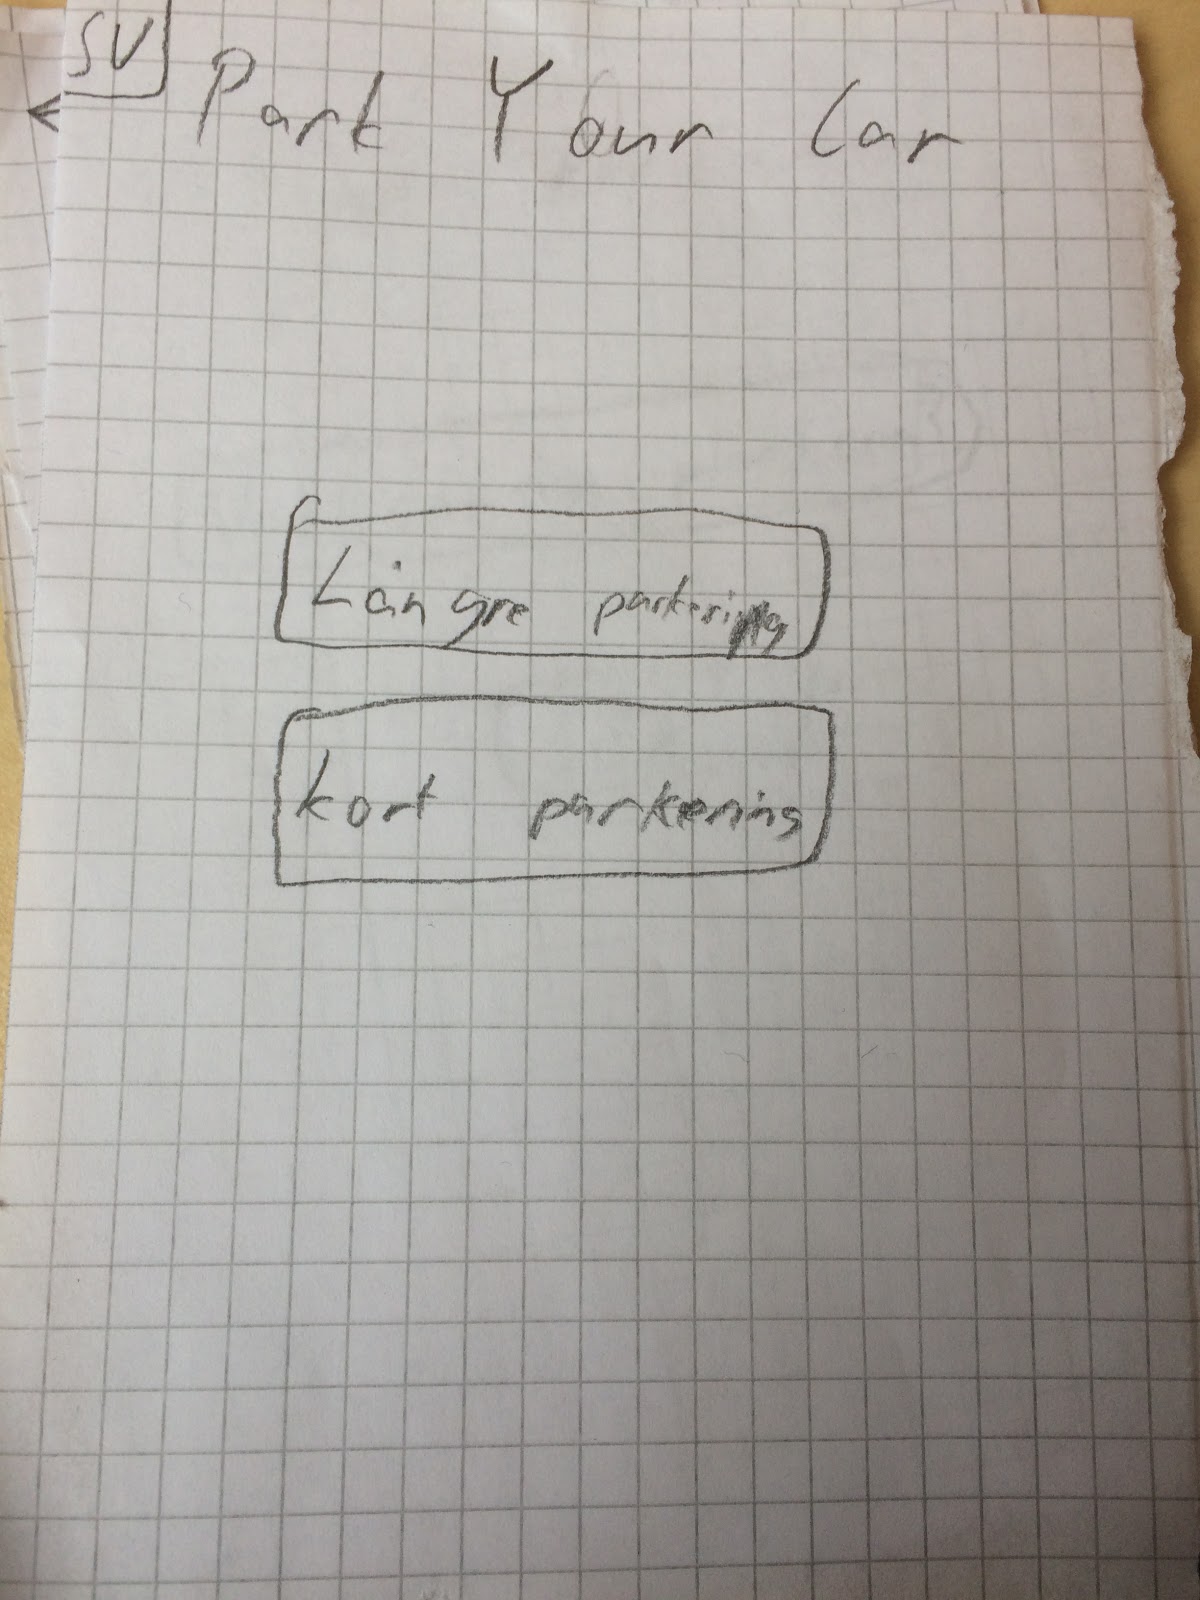 SV
Park Your Car
Längre parkering
kort parkering